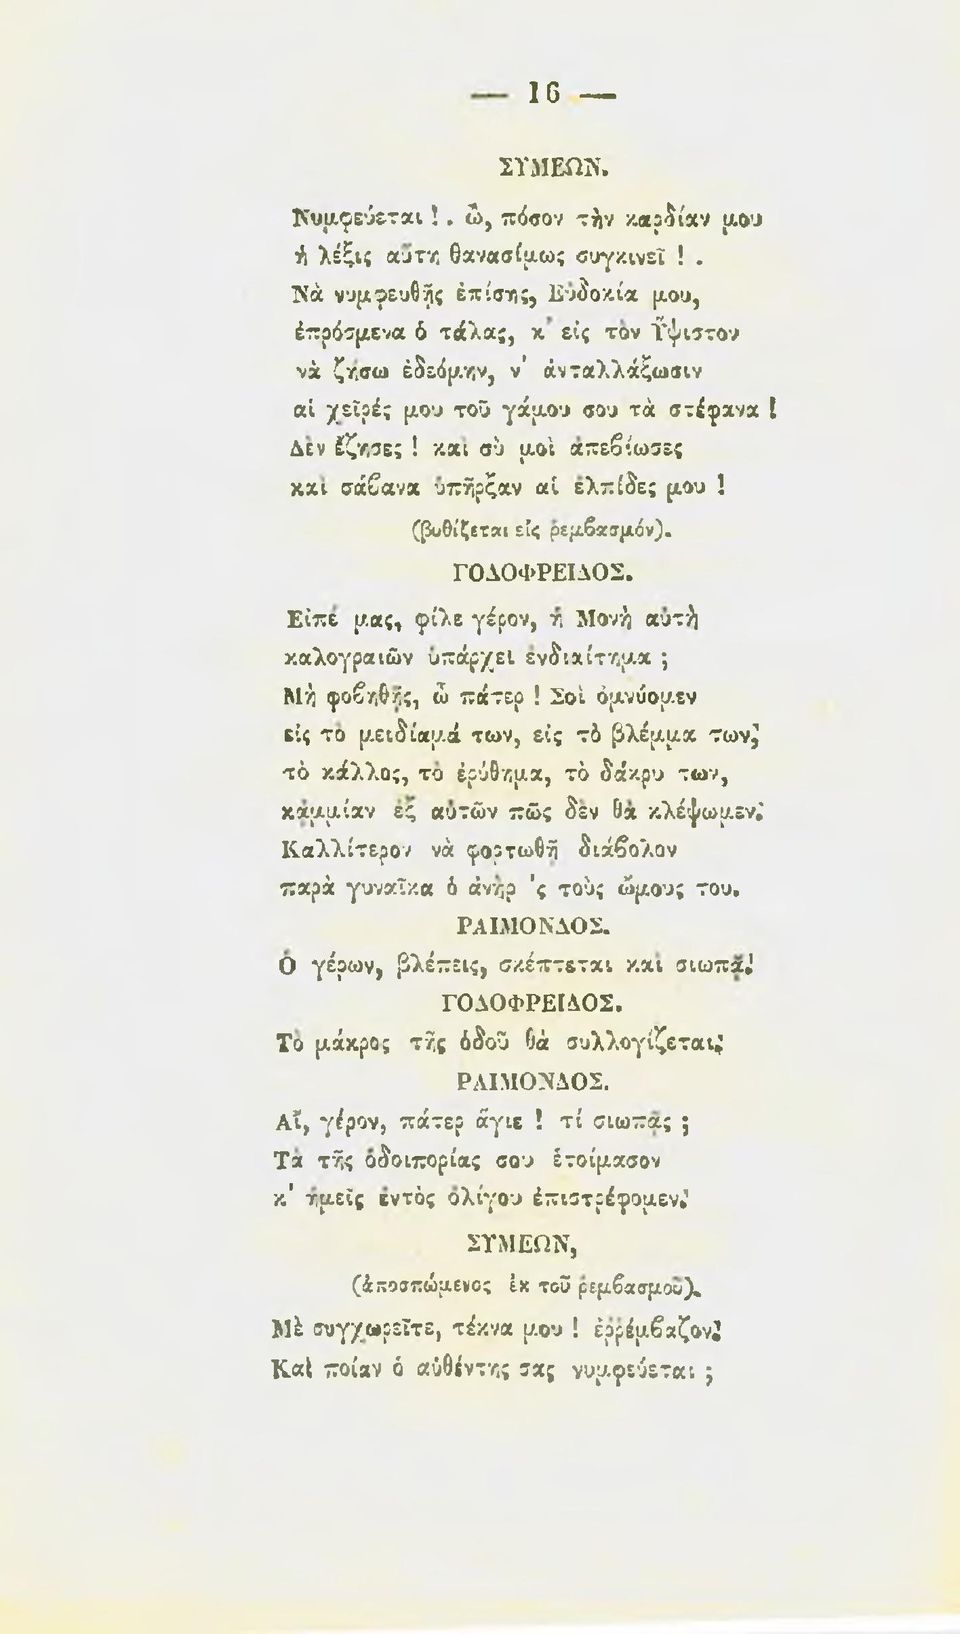 — 16 —
ΣΥΜΕΩΝ.
Νυμφεύεται !. ὢ, πόσον τὴν καρδίαν μου
ἡ λέξις αὕτη θανασίμως συγκινεῖ !.
Νὰ νυμφευθῇς ἐπίσης, Εὐδοκία μου,
ἐπρόσμενα ὁ τάλας, κ' εἰς τὸν Ὕψιστον
νὰ ζήσω ἐδεόμην, ν' ἀνταλλάξωσιν
αἱ χεῖρές μου τοῦ γάμου σου τὰ στέφανα !
Δὲν ἔζησες ! καὶ σὺ μοὶ ἀπεβίωσες
καὶ σάβανα ὑπῆρξαν αἱ ἐλπίδες μου !
(βυθίζεται εἰς ῥεμβασμόν).
ΓΟΔΟΦΡΕΙΔΟΣ.
Εἰπέ μας, φίλε γέρον, ἡ Μονὴ αὐτὴ
καλογραιῶν ὑπάρχει ἐνδιαίτημα ;
Μὴ φοβηθῇς, ὦ πάτερ ! Σοὶ ὀμνύομεν
εἰς τὸ μειδίαμά των, εἰς τὸ βλέμμα των,
τὸ κάλλος, τὸ ἐρύθημα, τὸ δάκρυ των,
κάμμίαν ἐξ αὐτῶν πῶς δὲν θὰ κλέψωμεν.
Καλλίτερον νὰ φορτωθῇ διάβολον
παρὰ γυναῖκα ὁ ἀνὴρ 'ς τοὺς ὤμους του.
ΡΑΙΜΟΝΔΟΣ.
Ὁ γέρων, βλέπεις, σκέπτεται καὶ σιωπᾷ.
ΓΟΔΟΦΡΕΙΔΟΣ.
Τὸ μάκρος τῆς ὁδοῦ θὰ συλλογίζεται.
ΡΑΙΜΟΝΔΟΣ.
Αἴ, γέρον, πάτερ ἅγιε ! τί σιωπᾷς ;
Τὰ τῆς ὁδοιπορίας σου ἑτοίμασον
κ' ἡμεῖς ἐντὸς ὀλίγου ἐπιστρέφομεν.
ΣΥΜΕΩΝ,
(ἀποσπώμενος ἐκ τοῦ ῥεμβασμοῦ).
Μὲ συγχωρεῖτε, τέκνα μου ! ἐῤῥέμβαζον.
Καὶ ποίαν ὁ αὐθέντης σας νυμφεύεται ;